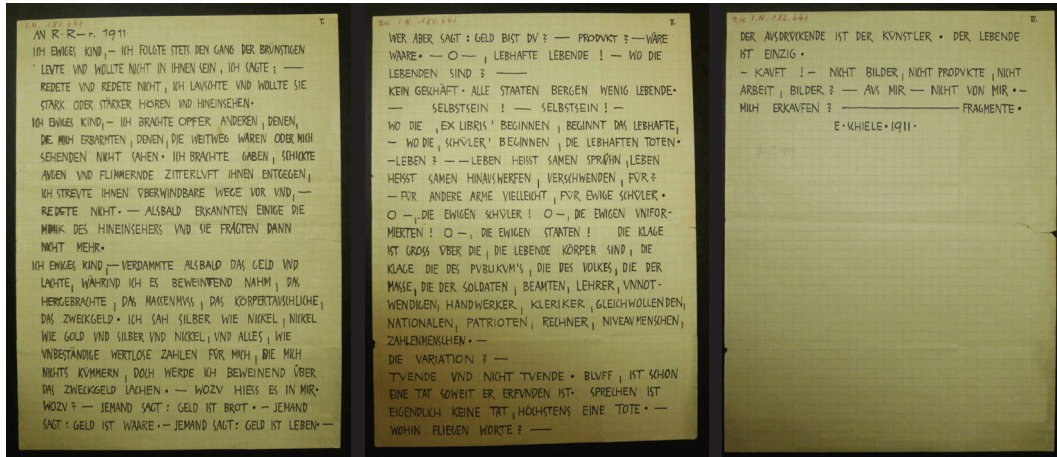 I.N. 180.641
I.
AN R. R–r. 1911.
ICH EWIGES KIND, – ICH FOLGTE STETS DEN GANG DER BRÜNSTIGEN
LEVTE VND WOLLTE NICHT IN IHNEN SEIN, ICH SAGTE ; —
REDETE VND REDETE NICHT, ICH LAVSCHTE VND WOLLTE SIE
STARK ODER STÄRKER HÖREN VND HINEINSEHEN.
ICH EWIGES KIND, – ICH BRACHTE OPFER ANDEREN, DENEN,
DIE MICH ERBARMTEN, DENEN, DIE WEITWEG WAREN ODER MICH
SEHENDEN NICHT SAHEN. ICH BRACHTE GABEN, SCHICKTE
AVGEN VND FLIMMERNDE ZITTERLVFT IHNEN ENTGEGEN,
ICH STREVTE IHNEN ÜBERWINDBARE WEGE VOR VND, —
REDETE NICHT. — ALSBALD ERKANNTEN EINIGE DIE
MIMIK DES HINEINSEHERS VND SIE FRAGTEN DANN
NICHT MEHR.
ICH EWIGES KIND, – VERDAMMTE ALSBALD DAS GELD VND
LACHTE, WÄHRIND ICH ES BEWEINTEND NAHM, DAS
HERGEBRACHTE, DAS MASSENMVSS, DAS KÖRPERTAVSCHLICHE,
DAS ZWECKGELD. ICH SAH SILBER WIE NICKEL, NICKEL
WIE GOLD VND SILBER VND NICKEL, VND ALLES, WIE
VNBESTÄNDIGE WERTLOSE ZAHLEN FÜR MICH, DIE MICH
NICHTS KÜMMERN, DOCH WERDE ICH BEWEINEND ÜBER
DAS ZWECKGELD LACHEN. — WOZV HIESS ES IN MIR.
WOZV ? — JEMAND SAGT : GELD IST BROT. – JEMAND
SAGT : GELD IST WAARE. – JEMAND SAGT : GELD IST LEBEN. —
zu I.N. 180.641
II.
WER ABER SAGT : GELD BIST DV ? — PRODVKT ? — WÄRE
WAARE. — O —, LEBHAFTE LEBENDE ! — WO DIE
LEBENDEN SIND ? —
KEIN GESCHÄFT. ALLE STAATEN BERGEN WENIG LEBENDE.
— SELBSTSEIN ! — SELBSTSEIN ! —
WO DIE ,EX LIBRIS' BEGINNEN, BEGINNT DAS LEBHAFTE,
– WO DIE, SCHÜLER' BEGINNEN, DIE LEBHAFTEN TOTEN.
–LEBEN ? — —LEBEN HEISST SAMEN SPRÜHN, LEBEN
HEISST SAMEN HINAUSWERFEN, VERSCHWENDEN, FÜR ?
– FÜR ANDERE ARME VIELLEICHT, FÜR EWIGE SCHÜLER.
O —, DIE EWIGEN SCHÜLER ! O —, DIE EWIGEN VNIFOR-
MIERTEN ! O —, DIE EWIGEN STAATEN ! DIE KLAGE
IST GROSS ÜBER DIE, DIE LEBENDE KÖRPER SIND, DIE
KLAGE DIE DES PVBLIKVM'S, DIE DES VOLKES, DIE DER
MASSE, DIE DER SOLDATEN, BEAMTEN, LEHRER, VNNOT-
WENDIGEN, HANDWERKER, KLERIKER, GLEICHWOLLENDEN,
NATIONALEN, PATRIOTEN, RECHNER, NIVEAVMENSCHEN,
ZAHLENMENSCHEN. —
DIE VARIATION ? —
TVENDE VND NICHT TVENDE. BLVFF, IST SCHON
EINE TAT SOWEIT ER ERFVNDEN IST. SPRECHEN IST
EIGENDLICH KEINE TAT, HÖCHSTENS EINE TOTE. —
WOHIN FLIEGEN WORTE ? —
zu I.N. 180.641
III.
DER AVSDRÜCKENDE IST DER KÜNSTLER. DER LEBENDE
IST EINZIG.
– KAVFT ! – NICHT BILDER, NICHT PRODVKTE, NICHT
ARBEIT, BILDER ? — AVS MIR — NICHT VON MIR. –
MICH ERKAVFEN ? — FRAGMENTE.
E. SCHIELE. 1911.